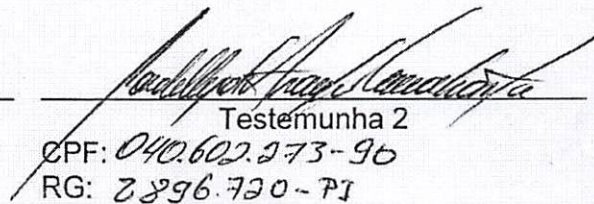 Testemunha 2
CPF: 040.602.273-90
RG: 2896.720-PI